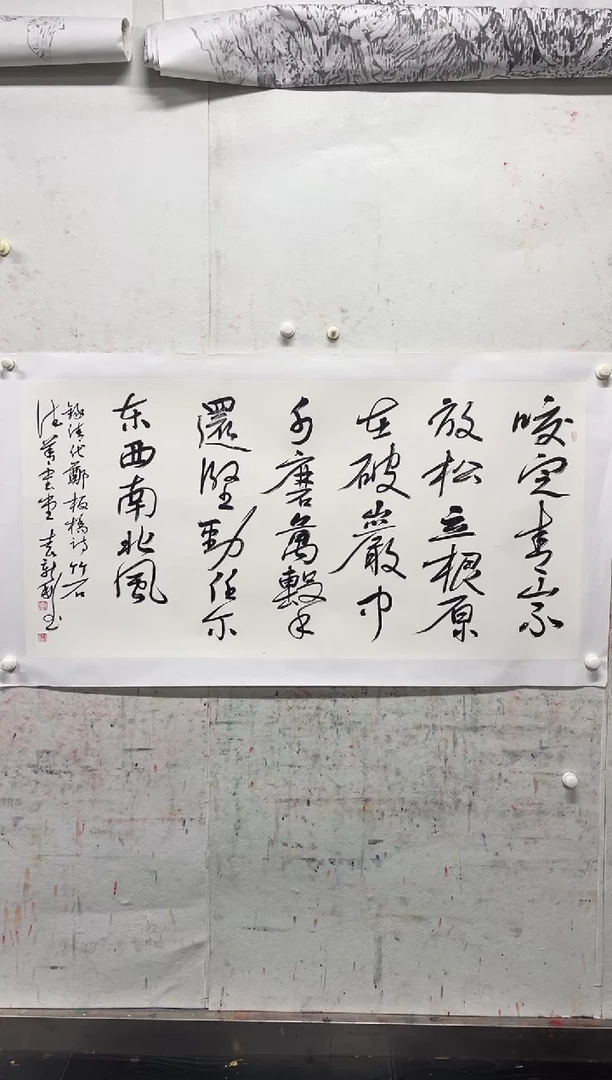 咬定青山不
放松立根原
在破巖中
千磨萬擊
還堅勁任尔
东西南北風
録清代鄭板橋詩竹石
堂 袁新